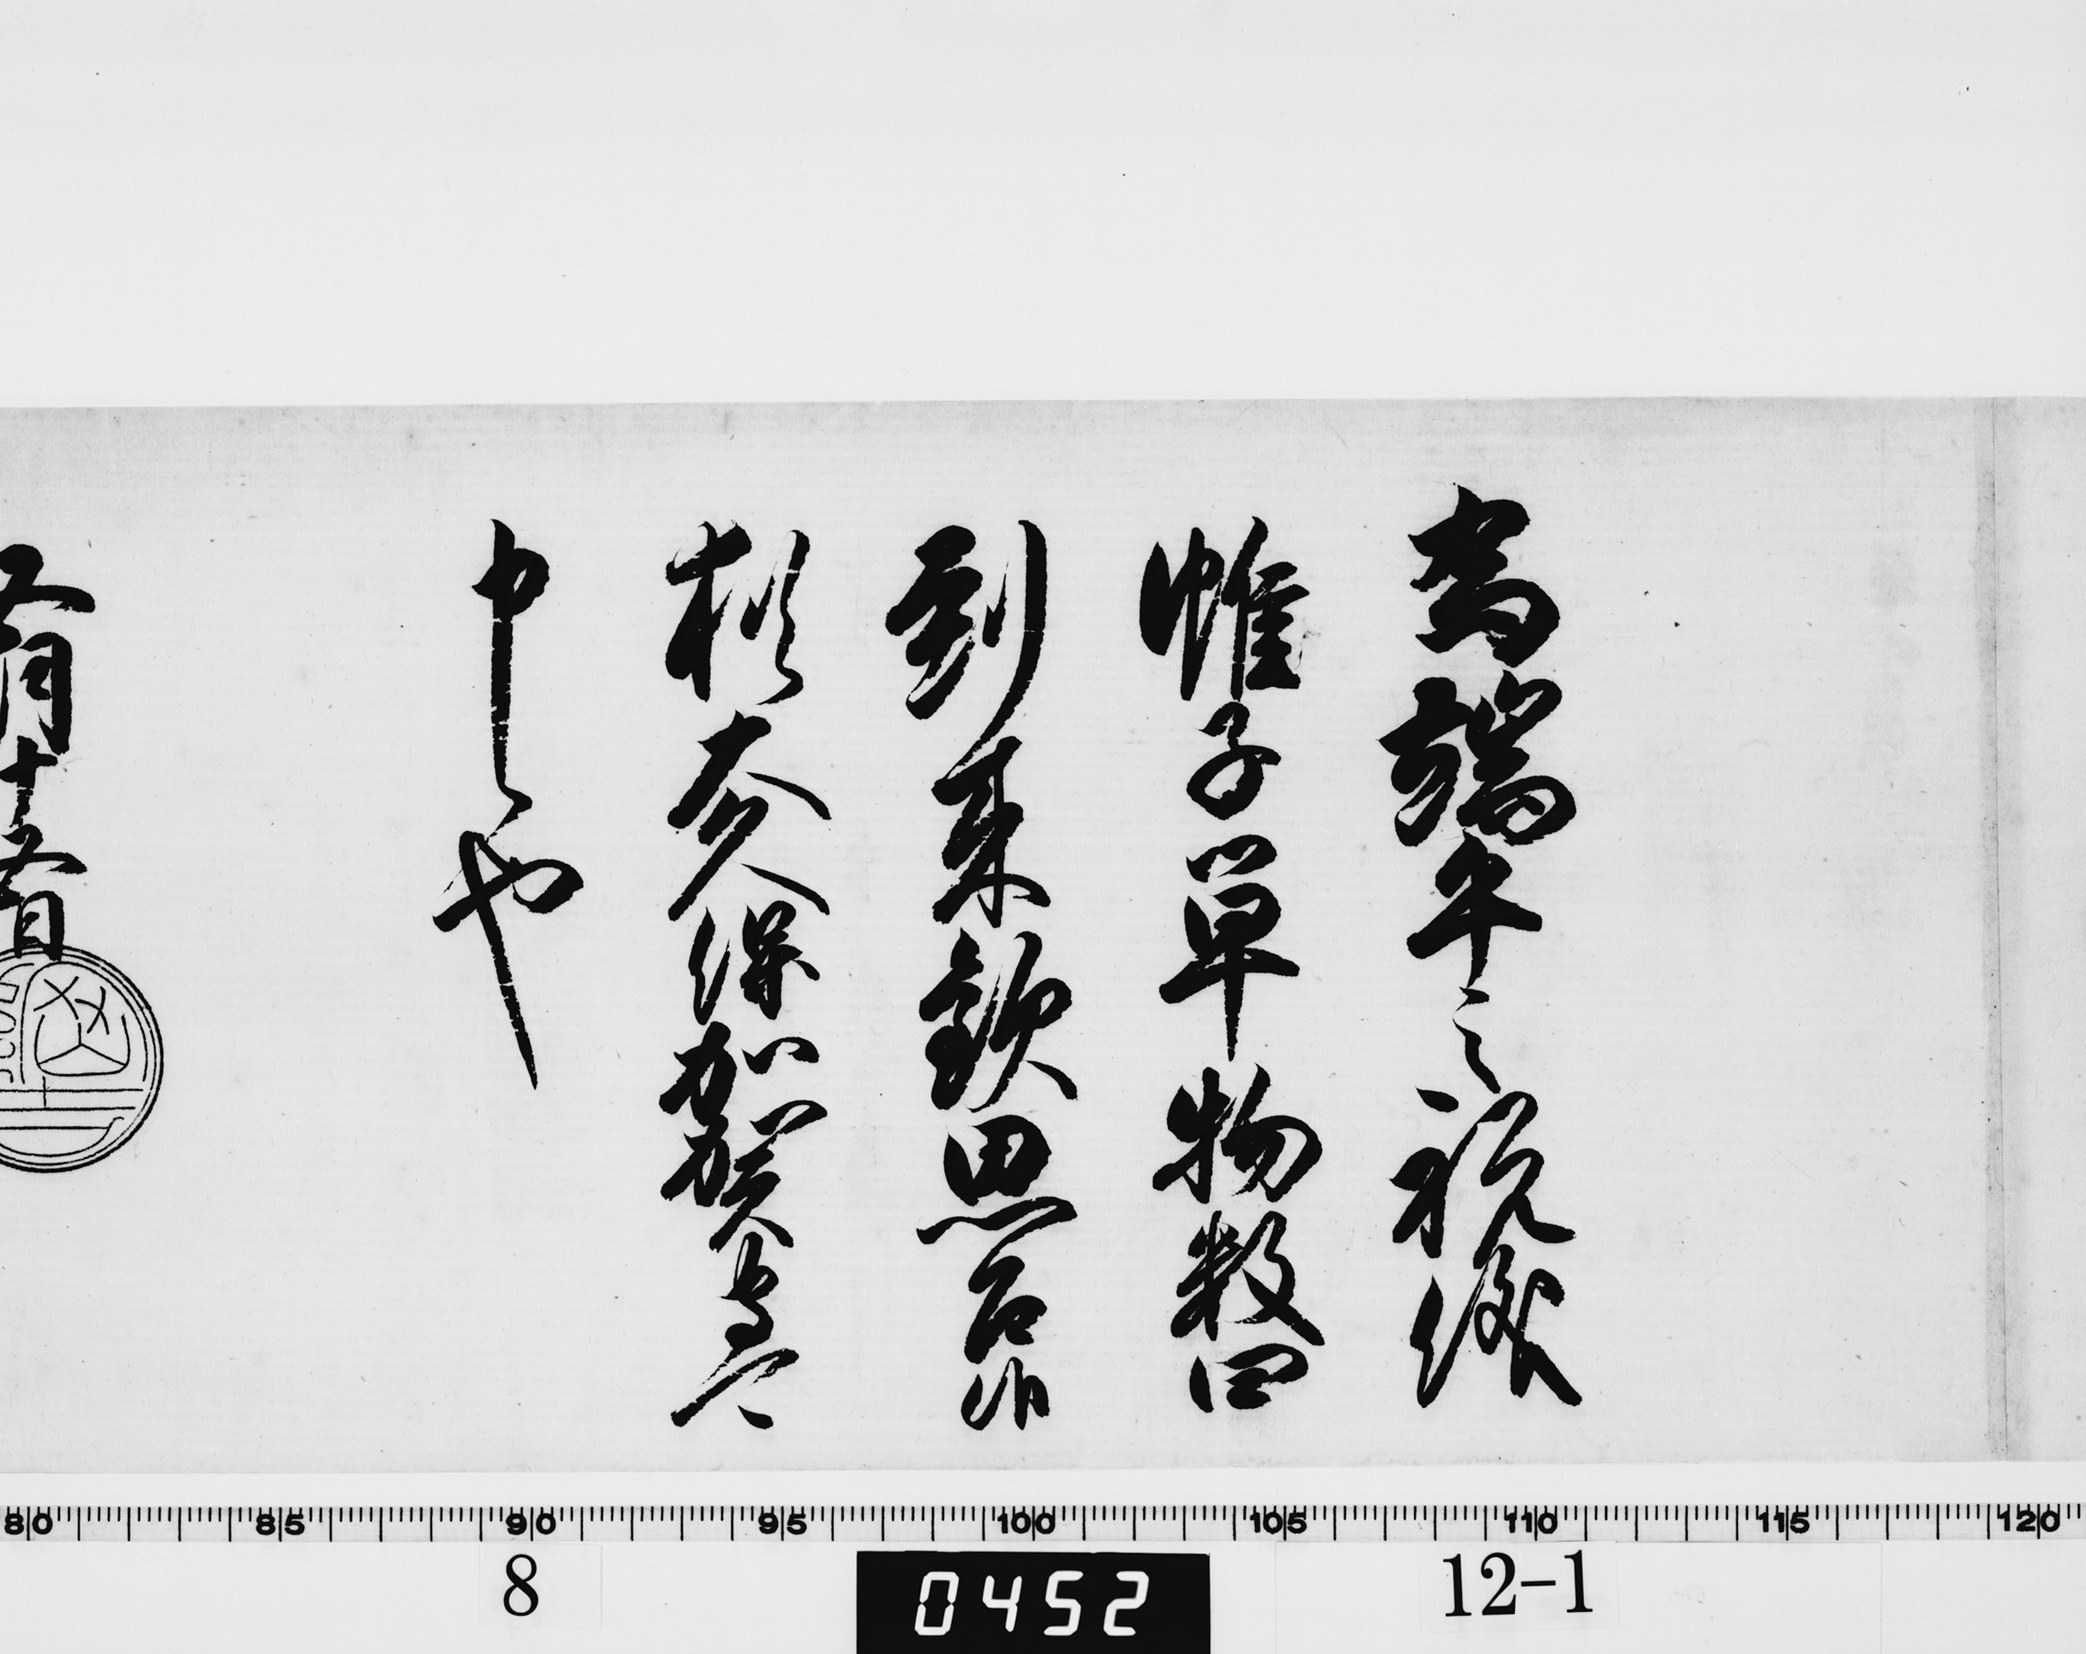 為端午之祝儀
帷子單物数四
到来歓思召候
猶委保加賀守可
申候也
五月十五日
80 85 90 95 100 105 110 115 120
8
0452
12-1